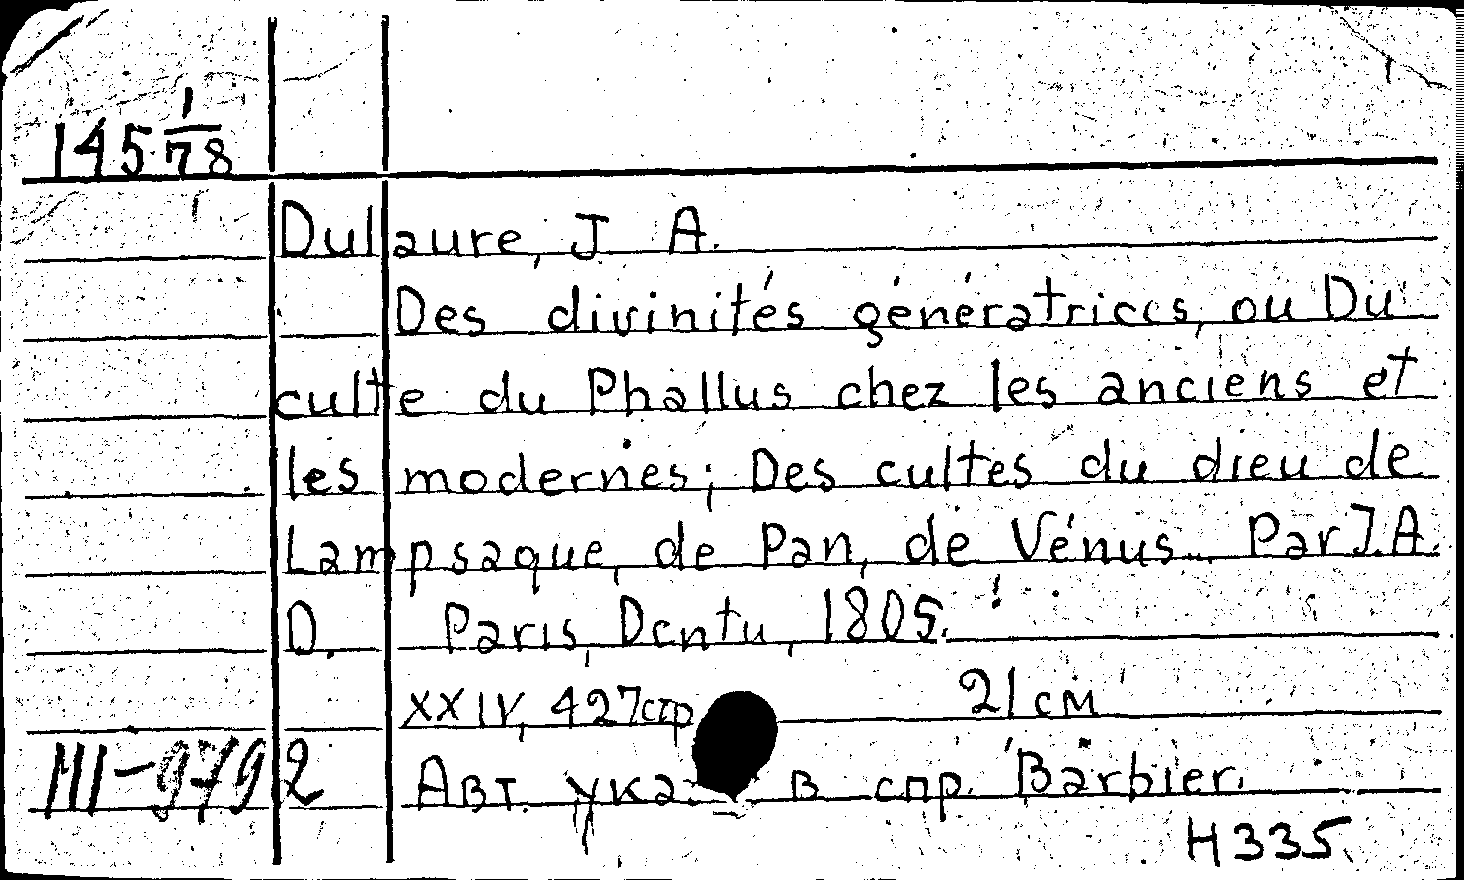 145 1/78
Dulaure, J A.
Des divinités génératrices, ou Du
culte du Phallus chez les anciens et
les modernes; Des cultes du dieu de
Lampsaque, de Pan, de Vénus... Par J.A.
D. Paris, Dentu, 1805.
XXIV, 427стр 21 см
III-979 2 Авт. в спр. Barbier.
H335.